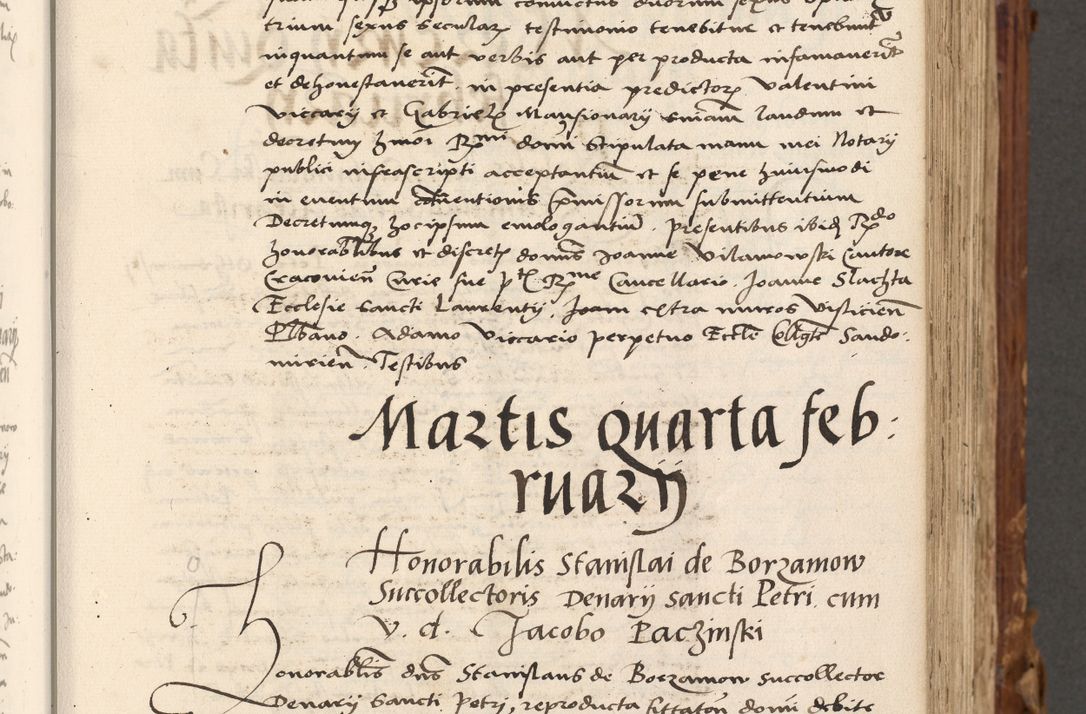 trium sexus secularz testimonio tenebitur et tenebunt
inquantum se aut verbis aut per producta infamauerit
et dehonestauerit, in presentia predictorz Valentini
Viccarij et Gabrielz Mansionarij laudum et
decretum hmoi Rmi domi stipulata manu mei Notarij
publici infrascripti acceptantium et se pene huiusmodi
in euentum contuentionis pmissorum submittentium
Decretumqz hocipsum emologantium. presentibus ibidz Rdo
honorabilibus et discretz domis Joanne Vilamowski Cantore
Cracouien Curie sue ptz Rme Cancellario. Joanne Slachta
Ecclesie Sancti Laurentij. extra muros Vislicien
Plbano. Adamo Viccario perpetuo Eccle Collgte Sando:
mirien. Testibus
Martis quarta feb:
ruarij
Honorabilis Stanislai de Borzamow
Succollectoris Denarij Sancti Petri cum
v. d. Jacobo Paczinski
Honorabilis dns Stanislaus de Borzamow succollector
Denarij Sancti Petri, reproducta domi debite